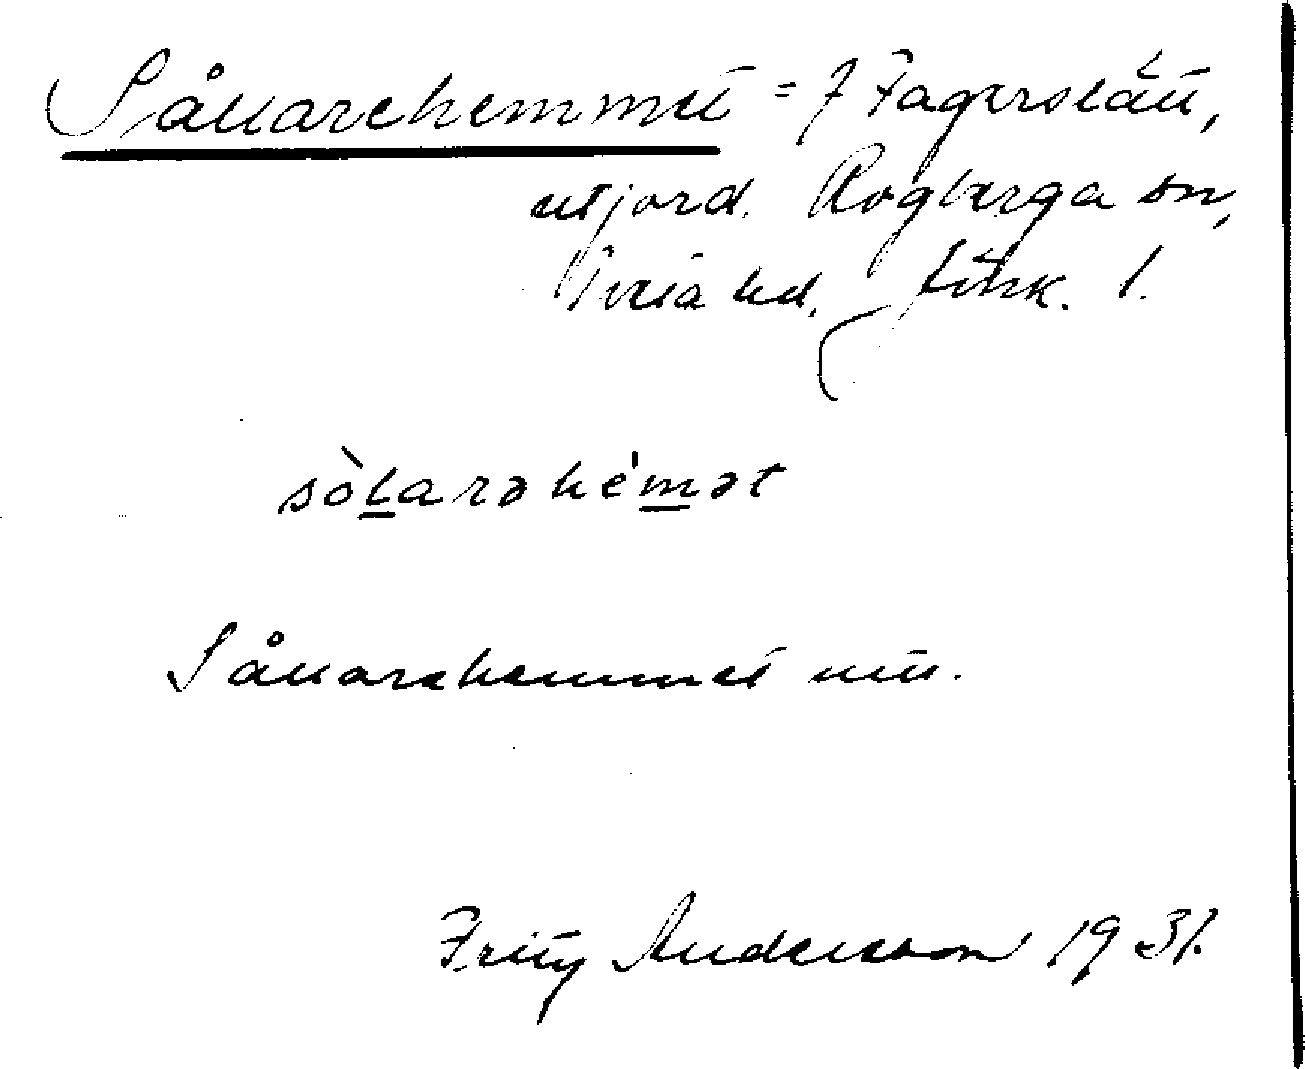 Sållarehemmet = 7 Fagerslätt,
utjord. Rogberga sn,
Tveta hd, Jönk. l.
sòlarəhémət
Sållarehemmet
Fritz Andersson 1931.